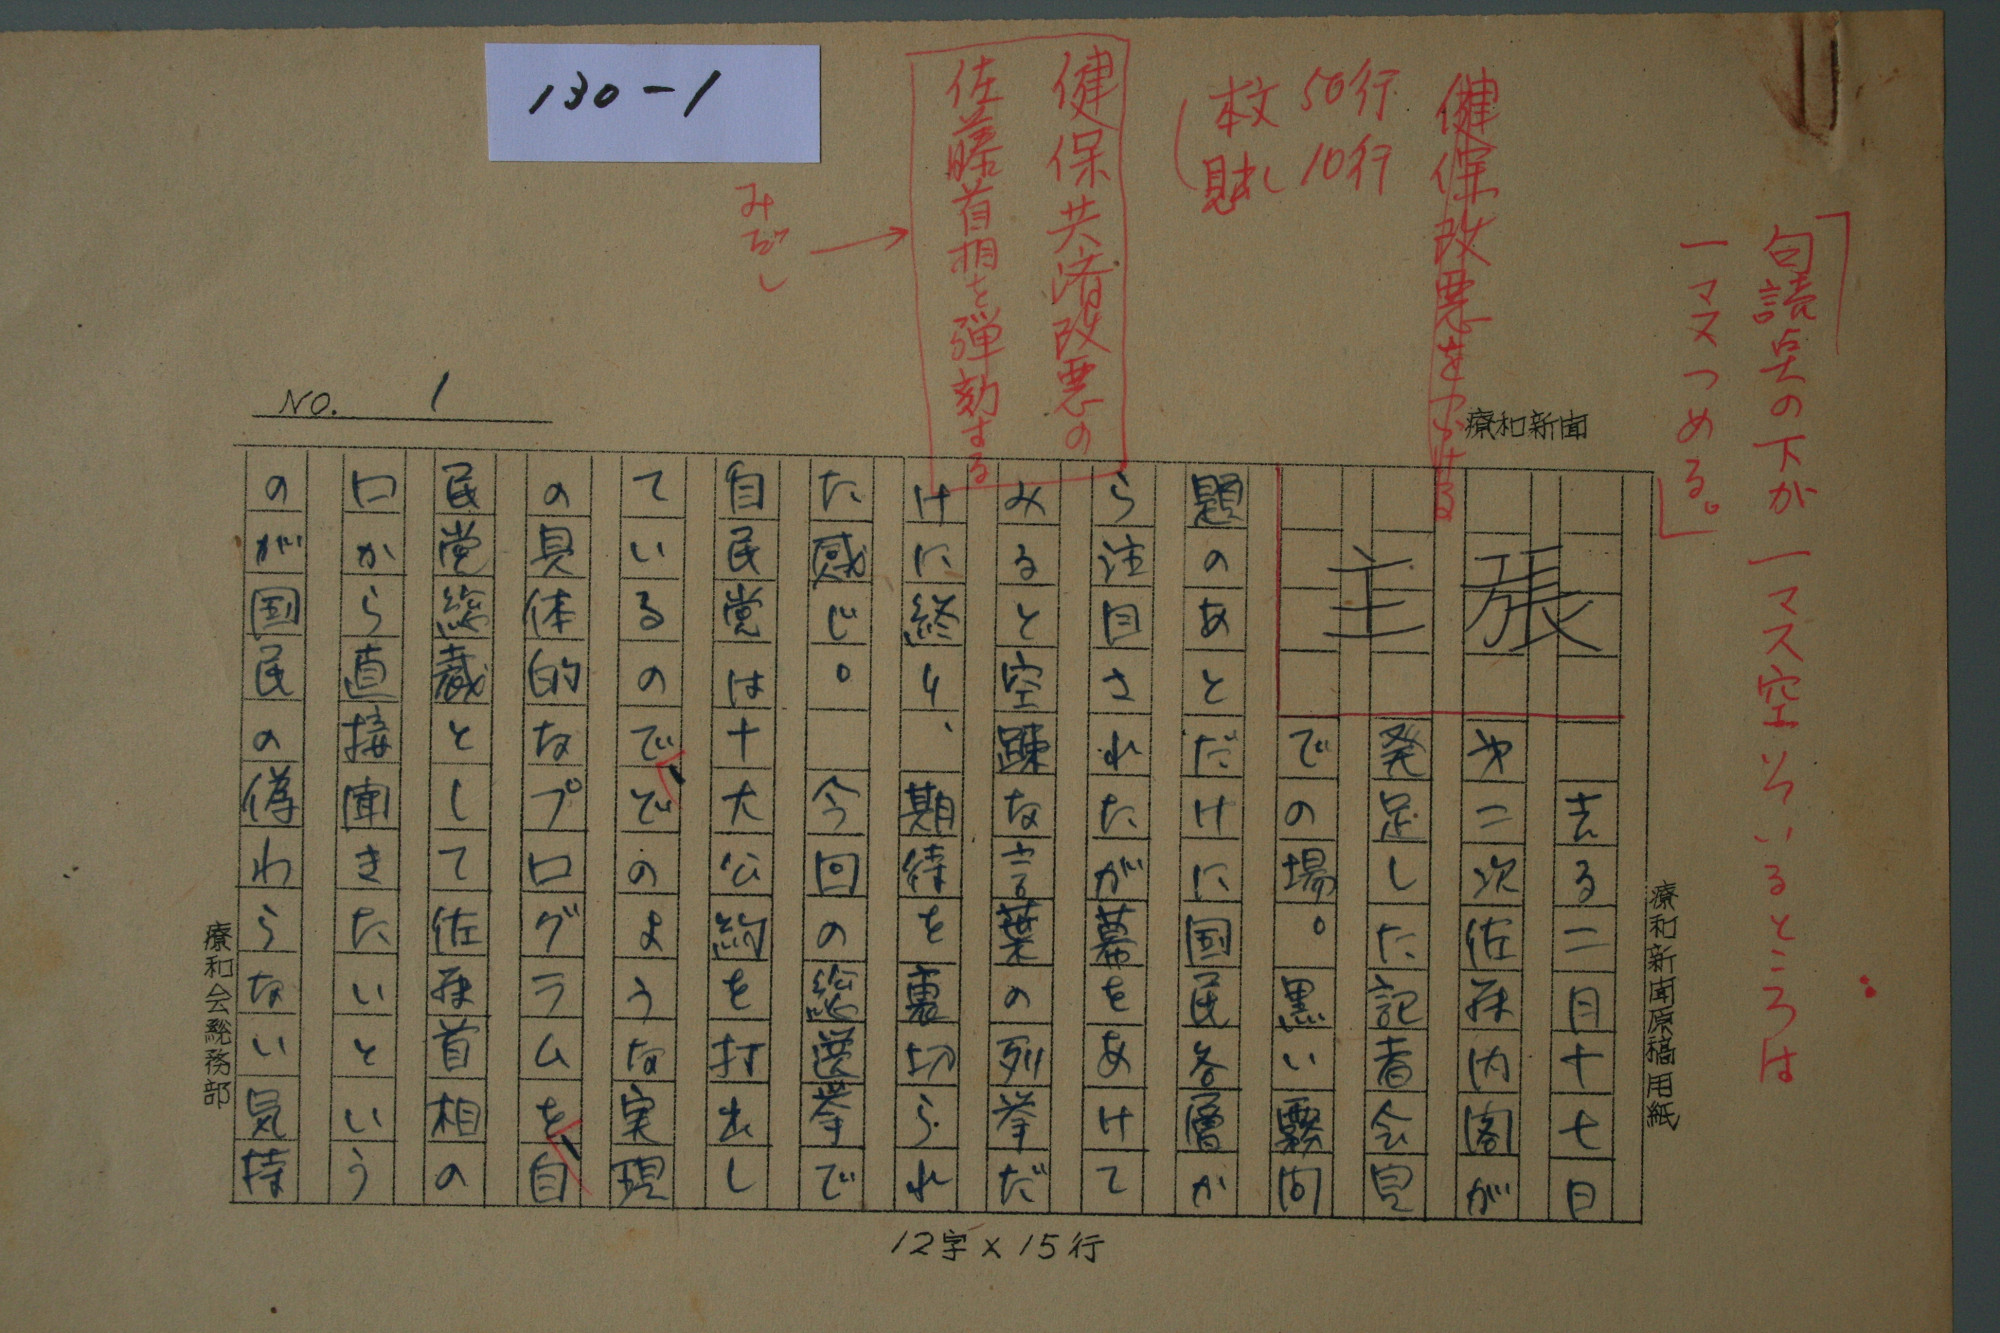 130-1
「句読点の下が一マス空いているところは
一マスつめる。」
健保改悪をやめる
本文 50行
見出し 10行
健保共済改悪の
佐藤首相を弾劾する
みだし
NO. 1
療和新聞
主張
去る二月十七日
二次佐藤内閣が
発足した記者会見
での場。黒い霧問
題のあとだけに国民各層か
ら注目されたが幕をあけて
みると空疎な言葉の列挙だ
けに終り、期待を裏切られ
た感じ。今回の総選挙で
自民党は十大公約を打出し
ているのでどのような実現
の具体的なプログラムを自
民党総裁として佐藤首相の
口から直接聞きたいという
のが国民の偽わらない気持
12字×15行
療和新聞原稿用紙
療和会総務部